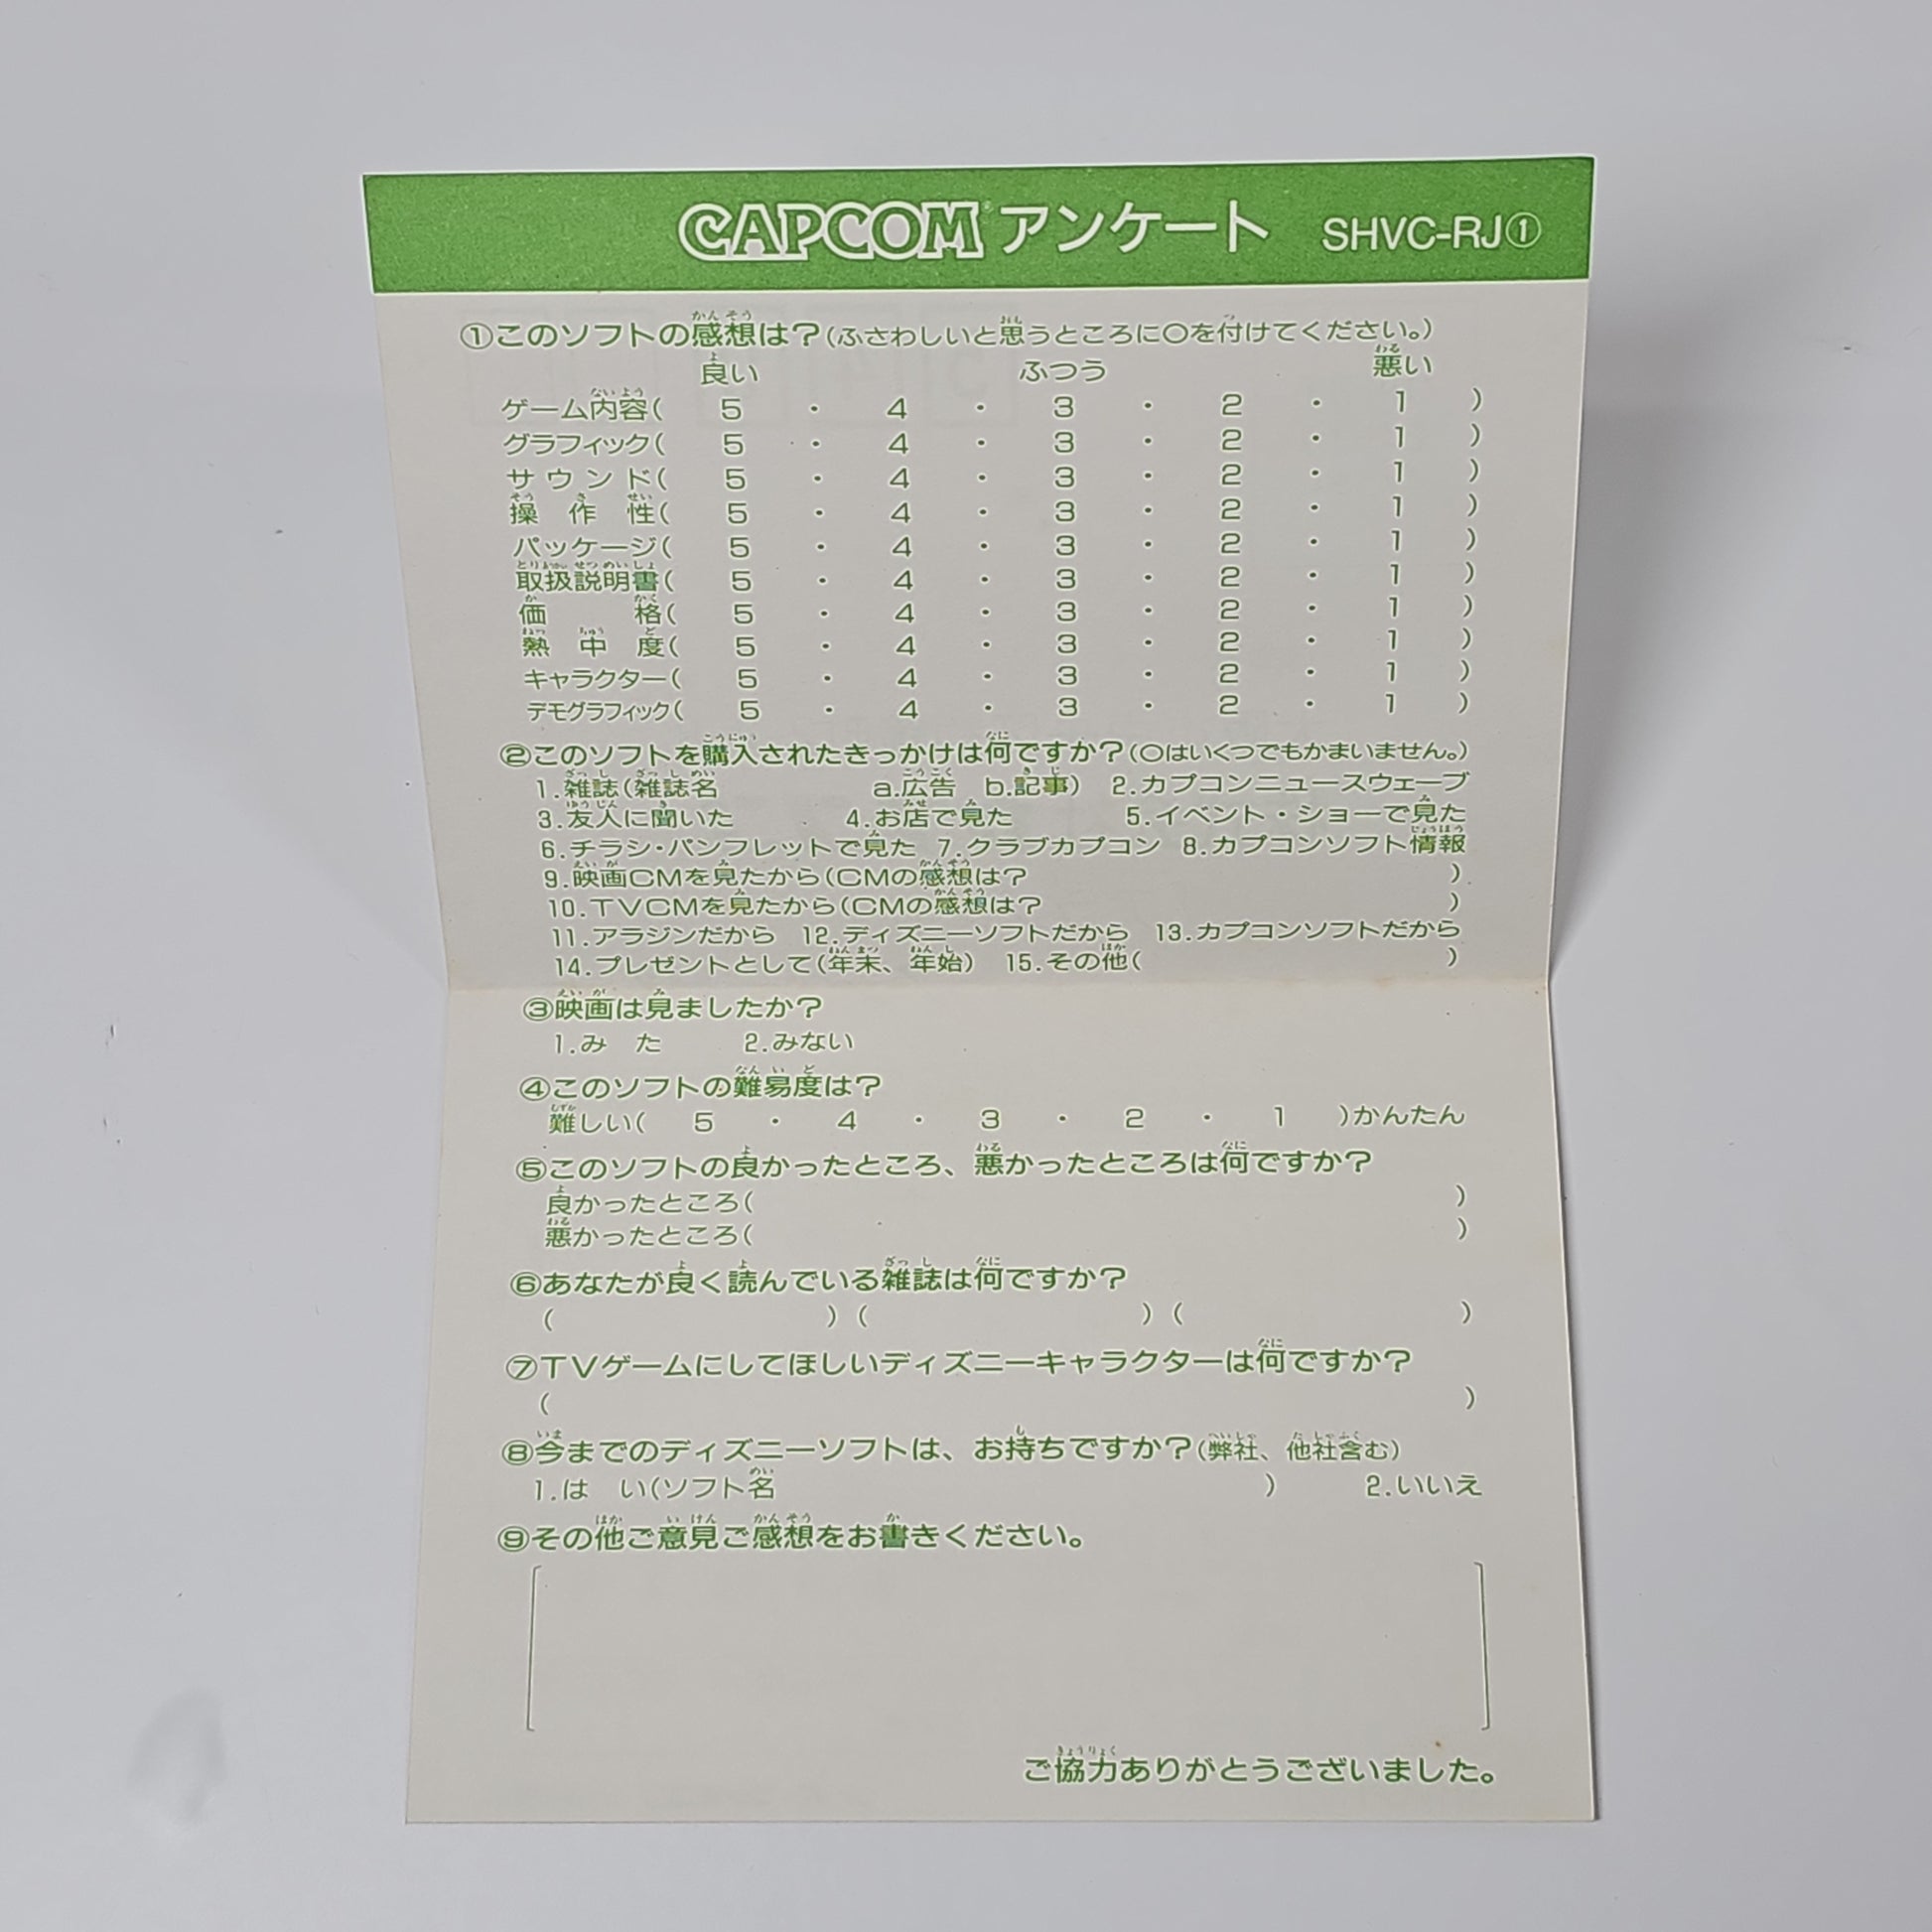 CAPCOM アンケート SHVC-RJ①
①このソフトの感想は？(ふさわしいと思うところに○を付けてください。)
良い ふつう 悪い
ゲーム内容( 5 ・ 4 ・ 3 ・ 2 ・ 1 )
グラフィック( 5 ・ 4 ・ 3 ・ 2 ・ 1 )
サウンド( 5 ・ 4 ・ 3 ・ 2 ・ 1 )
操作性( 5 ・ 4 ・ 3 ・ 2 ・ 1 )
パッケージ( 5 ・ 4 ・ 3 ・ 2 ・ 1 )
取扱説明書( 5 ・ 4 ・ 3 ・ 2 ・ 1 )
価格( 5 ・ 4 ・ 3 ・ 2 ・ 1 )
熱中度( 5 ・ 4 ・ 3 ・ 2 ・ 1 )
キャラクター( 5 ・ 4 ・ 3 ・ 2 ・ 1 )
デモグラフィック( 5 ・ 4 ・ 3 ・ 2 ・ 1 )
②このソフトを購入されたきっかけは何ですか？(○はいくつでもかまいません。)
1.雑誌(雑誌名 a.広告 b.記事) 2.カプコンニュースウェーブ
3.友人に聞いた 4.お店で見た 5.イベント・ショーで見た
6.チラシ・パンフレットで見た 7.クラブカプコン 8.カプコンソフト情報
9.映画CMを見たから(CMの感想は？ )
10.TVCMを見たから(CMの感想は？ )
11.アラジンだから 12.ディズニーソフトだから 13.カプコンソフトだから
14.プレゼントとして(年末、年始) 15.その他( )
③映画は見ましたか？
1.みた 2.みない
④このソフトの難易度は？
難しい( 5 ・ 4 ・ 3 ・ 2 ・ 1 )かんたん
⑤このソフトの良かったところ、悪かったところは何ですか？
良かったところ( )
悪かったところ( )
⑥あなたが良く読んでいる雑誌は何ですか？
( ) ( ) ( )
⑦TVゲームにしてほしいディズニーキャラクターは何ですか？
( )
⑧今までのディズニーソフトは、お持ちですか？(弊社、他社含む)
1.はい(ソフト名 ) 2.いいえ
⑨その他ご意見ご感想をお書きください。
ご協力ありがとうございました。